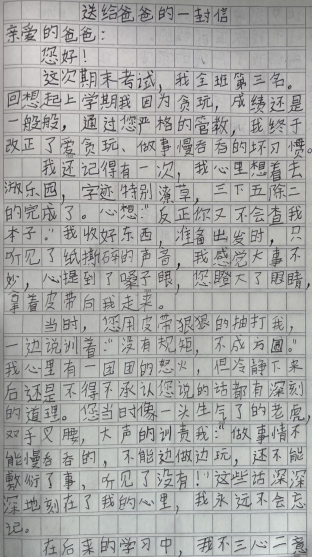 送给爸爸的一封信
亲爱的爸爸：
您好！
这次期末考试，我全班第三名。
回想起上学期我因为贪玩，成绩还是
一般般，通过您严格的管教，我终于
改正了爱贪玩、做事慢吞吞的坏习惯。
我还记得有一次，我心里想着去
游乐园，字迹特别潦草，三下五除二
的完成了。心想：“反正你又不会查我
本子。”我收好东西，准备出发时，只
听见了纸撕碎的声音，我感觉大事不
妙，心提到了嗓子眼，您瞪大了眼睛，
拿着皮带向我走来。
当时，您用皮带狠狠的抽打我，
一边说训着：“没有规矩，不成方圆。”
我心里有一团团的怒火，但冷静下来
后还是不得不承认您说的话都有深刻
的道理。您当时像一头生气了的老虎，
双手叉腰，大声的训责我：“做事情不
能慢吞吞的，不能边做边玩，还不能
敷衍了事，听见了没有！”这些话深深
深地刻在了我的心里，我永远不会忘
记。
在后来的学习中，我不三心二意